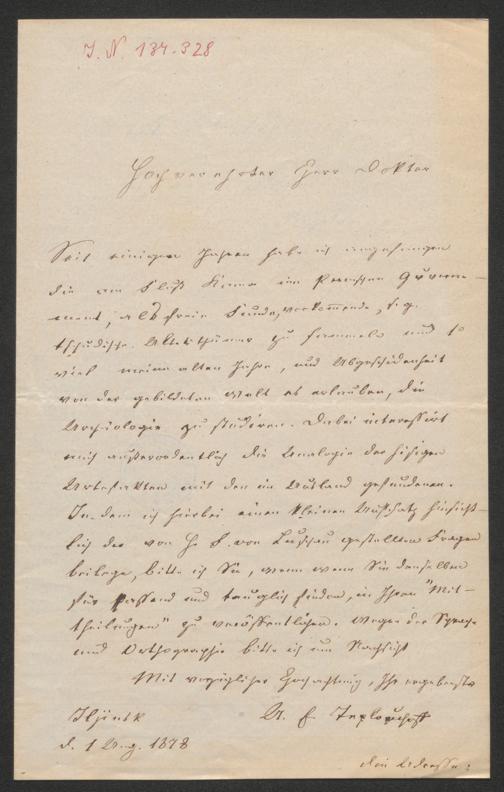 I. N. 134.328
Hochverehrter Herr Doktor
Seit einigen Jahren habe ich angefangen
die am Fluß Kama im Permschen Guverne-
ment, als freie Funde, vorkommende, s. g.
tschudische Alterthümer zu sammeln und so
viel meine alten Jahre, und Abgeschiedenheit
von der gebildeten Welt es erlauben, die
Archäologie zu studiren. Dabei interessirt
mich außerordentlich die Analogie der hiesigen
Artefakten mit den im Ausland gefundenen.
In-dem ich hierbei einen kleinen Aufsatz hinsicht-
lich der von H. F. von Luschan gestellten Fragen
beilege, bitte ich Sie, wenn Sie denselben
für passend und tauglich finden, in Ihren "Mit-
theilungen" zu veröffentlichen. Wegen der Sprache
und Orthographie bitte ich um Nachsicht
Mit vorzüglicher Hochachtung, Ihr ergebenster
Iljinsk A. E. Teplouchoff
d. 1 Aug. 1878
die Adresse: